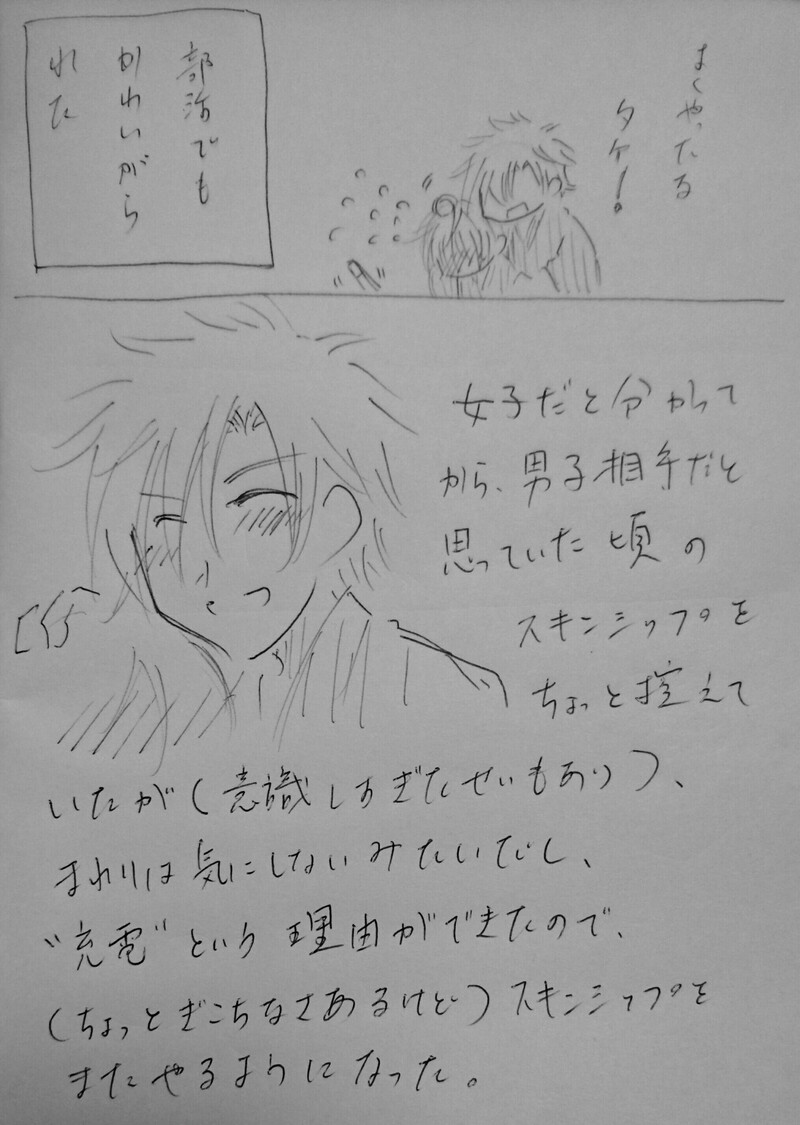 よくやったる
タケ！。
部活でも
かわいがら
れた
女子だと分かって
から、男子相手だと
思っていた頃の
スキンシップを
ちょっと控えて
いたが（意識しすぎたせいもあり）、
まれりは気にしないみたいだし、
"充電"という理由ができたので、
（ちょっとぎこちなさあるけど）スキンシップを
またやるようになった。